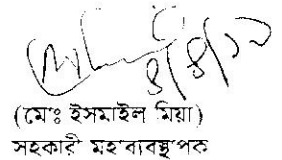 ৪/৪/১১
(মোঃ ইসমাইল মিয়া)
সহকারী মহাব্যবস্থাপক